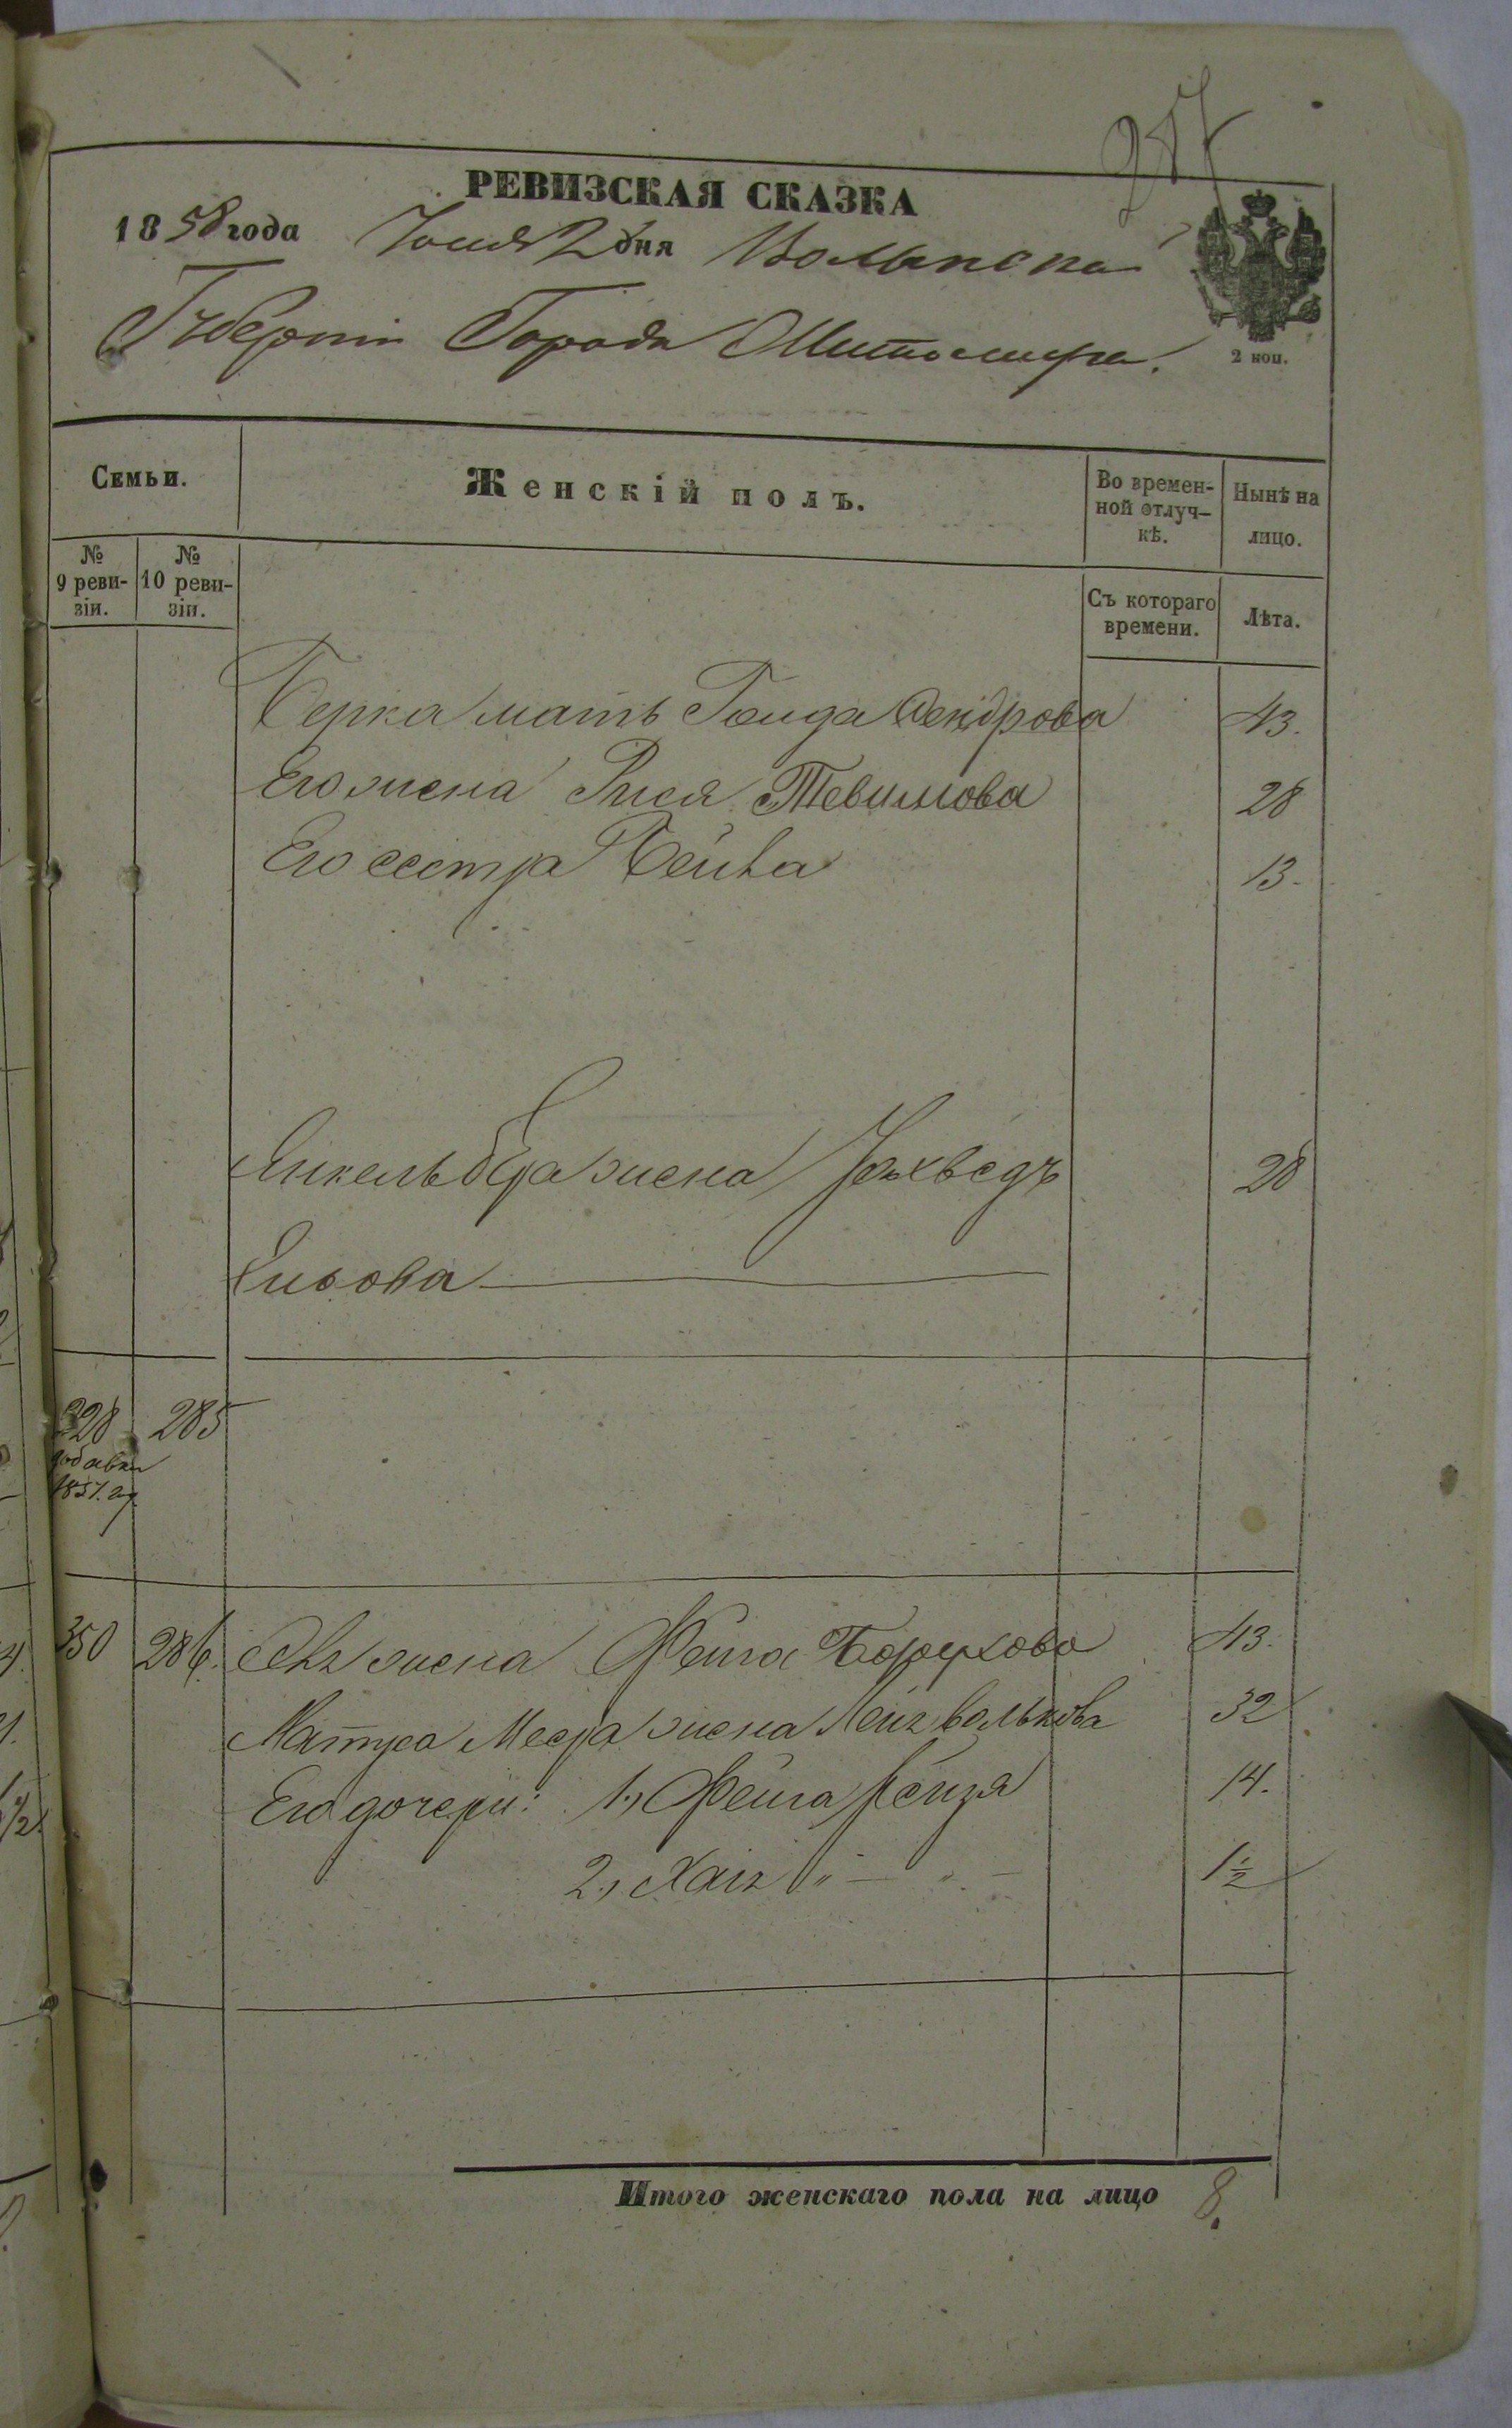 247
РЕВИЗСКАЯ СКАЗКА
1858 года Іюня 2 дня Волынской
Губерніи Города Житомира.
2 коп.
Семьи.
Женскій полъ.
Во времен-
ной отлуч-
кѣ.
Нынѣ на
лицо.
№
9 реви-
зіи.
№
10 реви-
зіи.
Съ котораго
времени.
Лѣта.
Берка мать Гольда Сендрова 43.
Его жена Рися Тевимова 28
Его сестра Бейла 13.
Янкель Бера жена Іохведъ 28
328 285
добавки
1857. г.
350 286. жена Фейга Борухова 43.
жена Волькова 32
Его дочери: 1, Фейга 14.
2, Хая " — " — 1½
Итого женскаго пола на лицо 8.